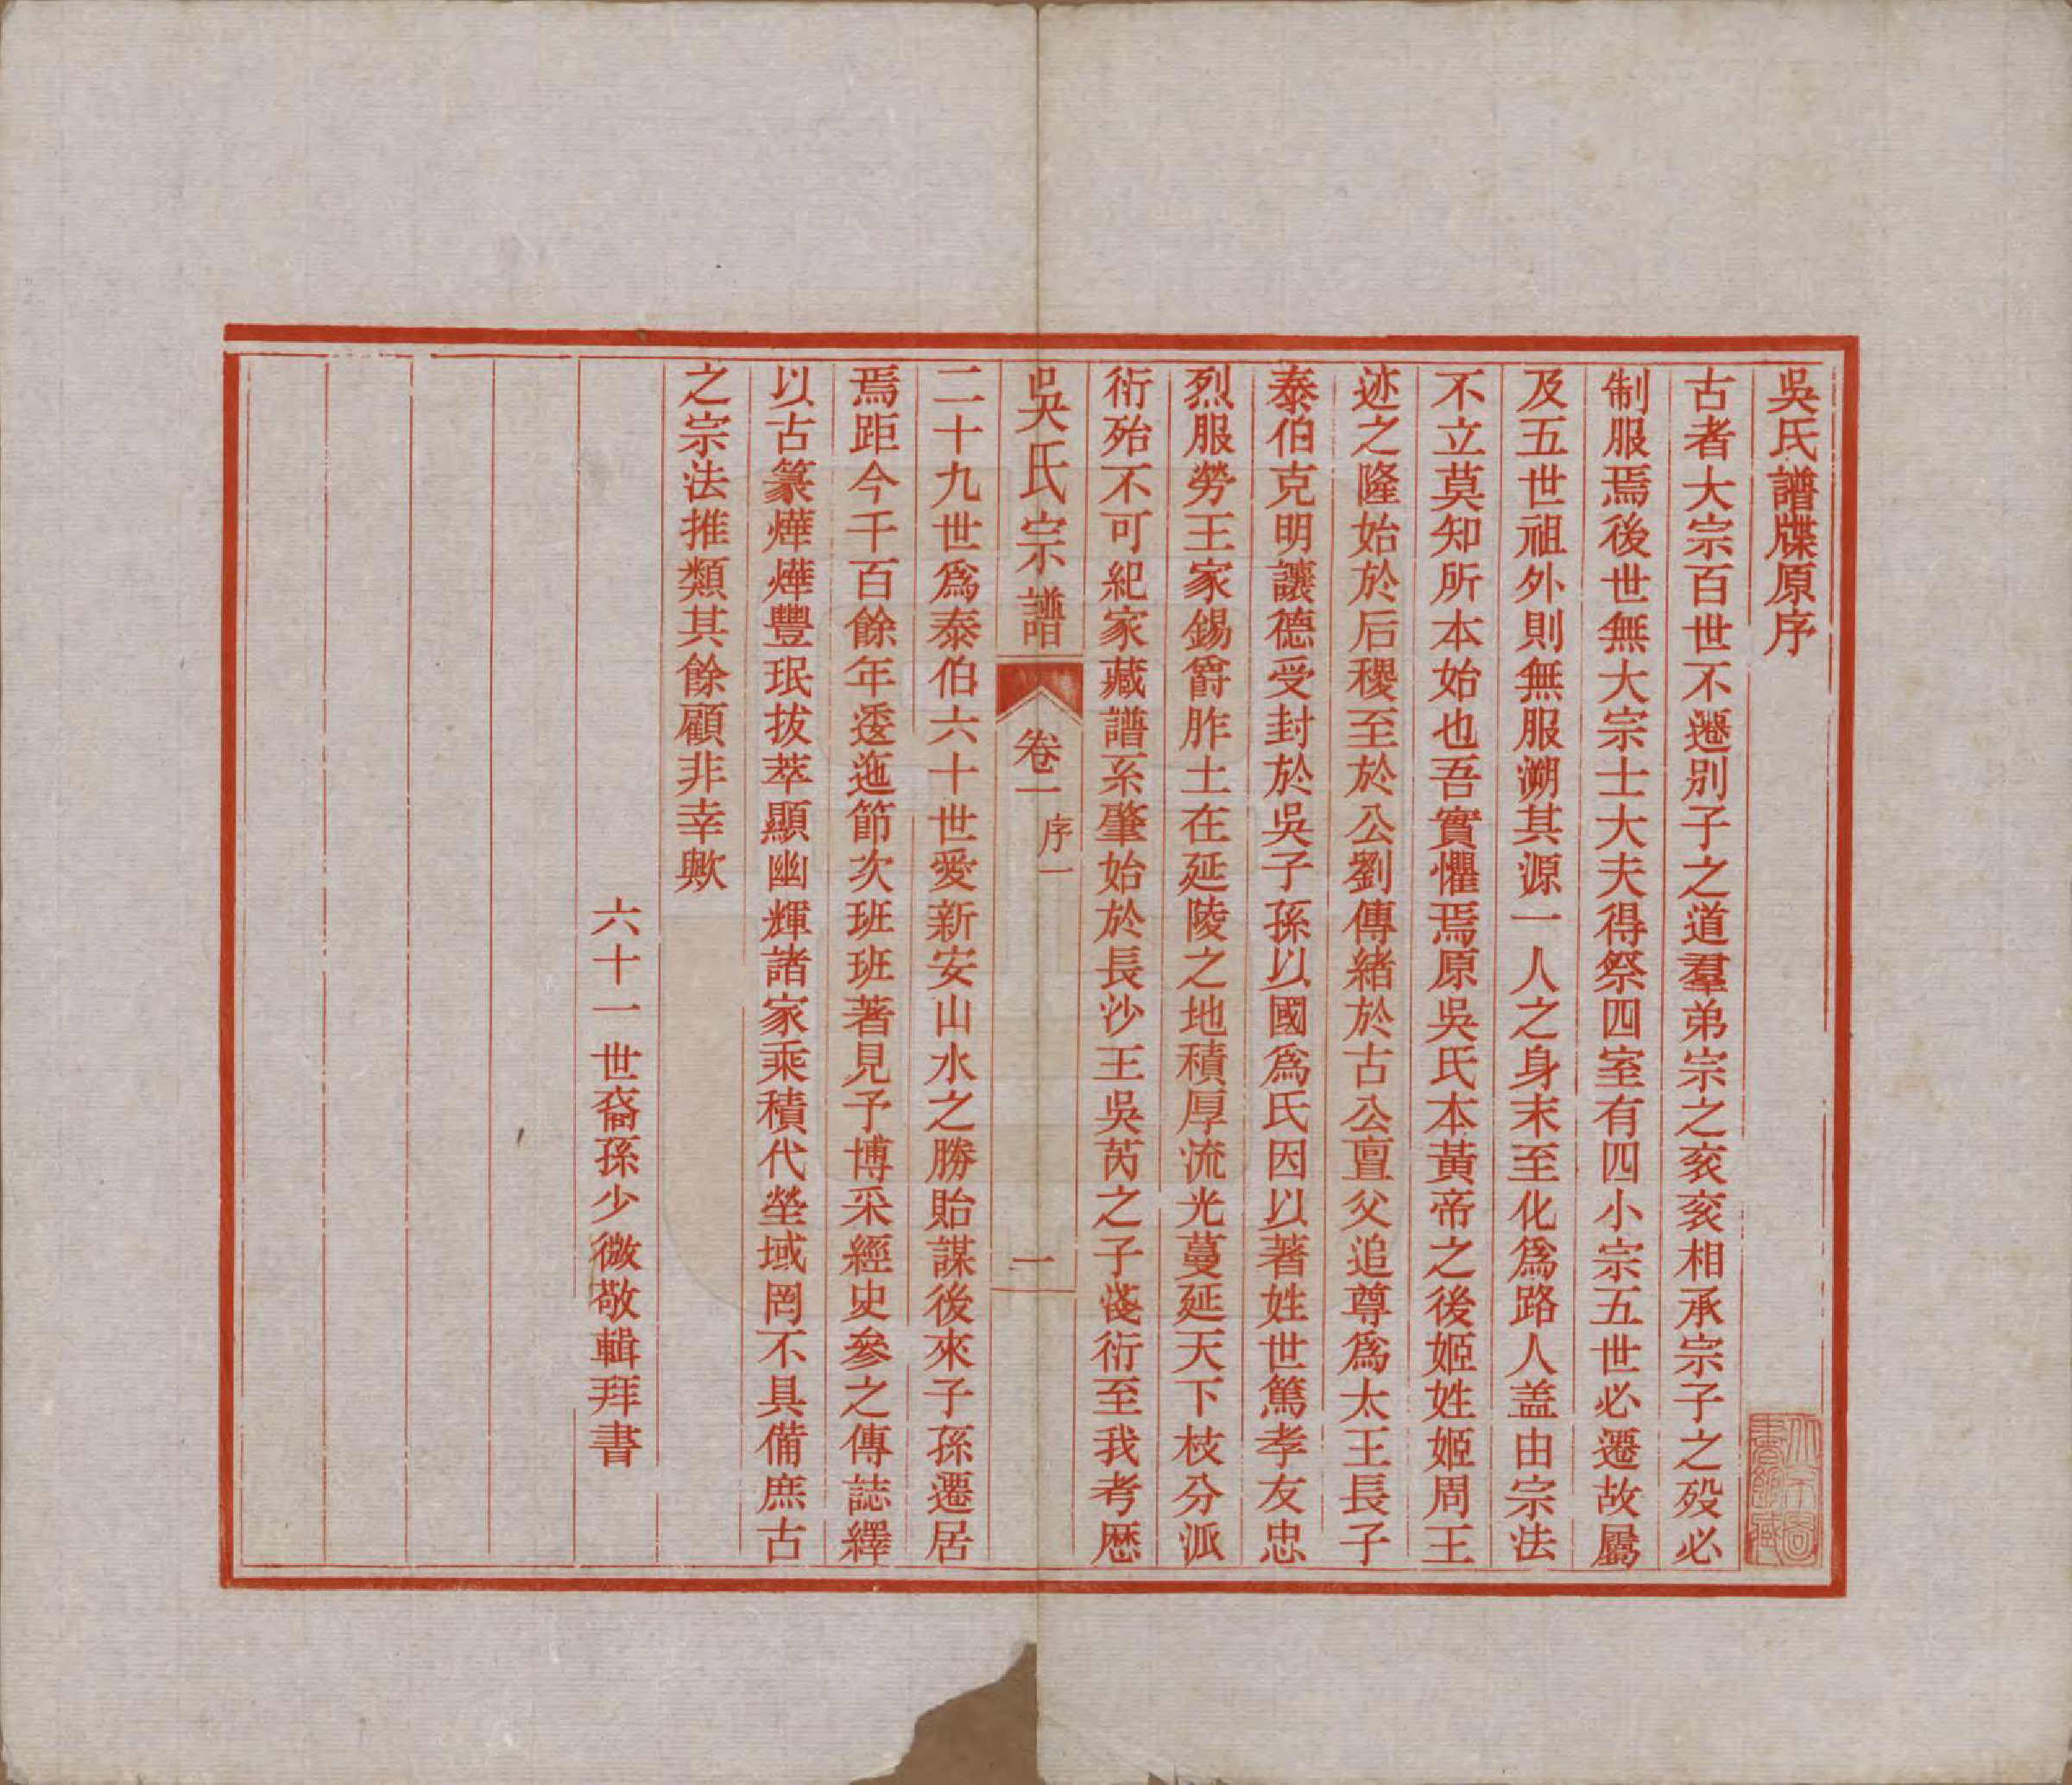 吳氏譜牒原序
古者大宗百世不遷別子之道羣弟宗之亥亥相承宗子之歿必
制服焉後世無大宗士大夫得祭四室有四小宗五世必遷故屬
及五世祖外則無服溯其源一人之身末至化爲路人盖由宗法
不立莫知所本始也吾實懼焉原吳氏本黃帝之後姬姓姬周王
迹之隆始於后稷至於公劉傳緒於古公亶父追尊爲太王長子
泰伯克明讓德受封於吳子孫以國爲氏因以著姓世篤孝友忠
烈服勞王家錫爵胙土在延陵之地積厚流光蔓延天下枝分派
衍殆不可紀家藏譜系肇始於長沙王吳芮之子淺衍至我考歷
吳氏宗譜
卷一
序一
一
二十九世爲泰伯六十世愛新安山水之勝貽謀後來子孫遷居
焉距今千百餘年逶迤節次班班著見予博采經史參之傳誌繹
以古篆燁燁豐珉拔萃顯幽輝諸家乘積代塋域罔不具備庶古
之宗法推類其餘顧非幸歟
六十一世裔孫少微敬輯拜書